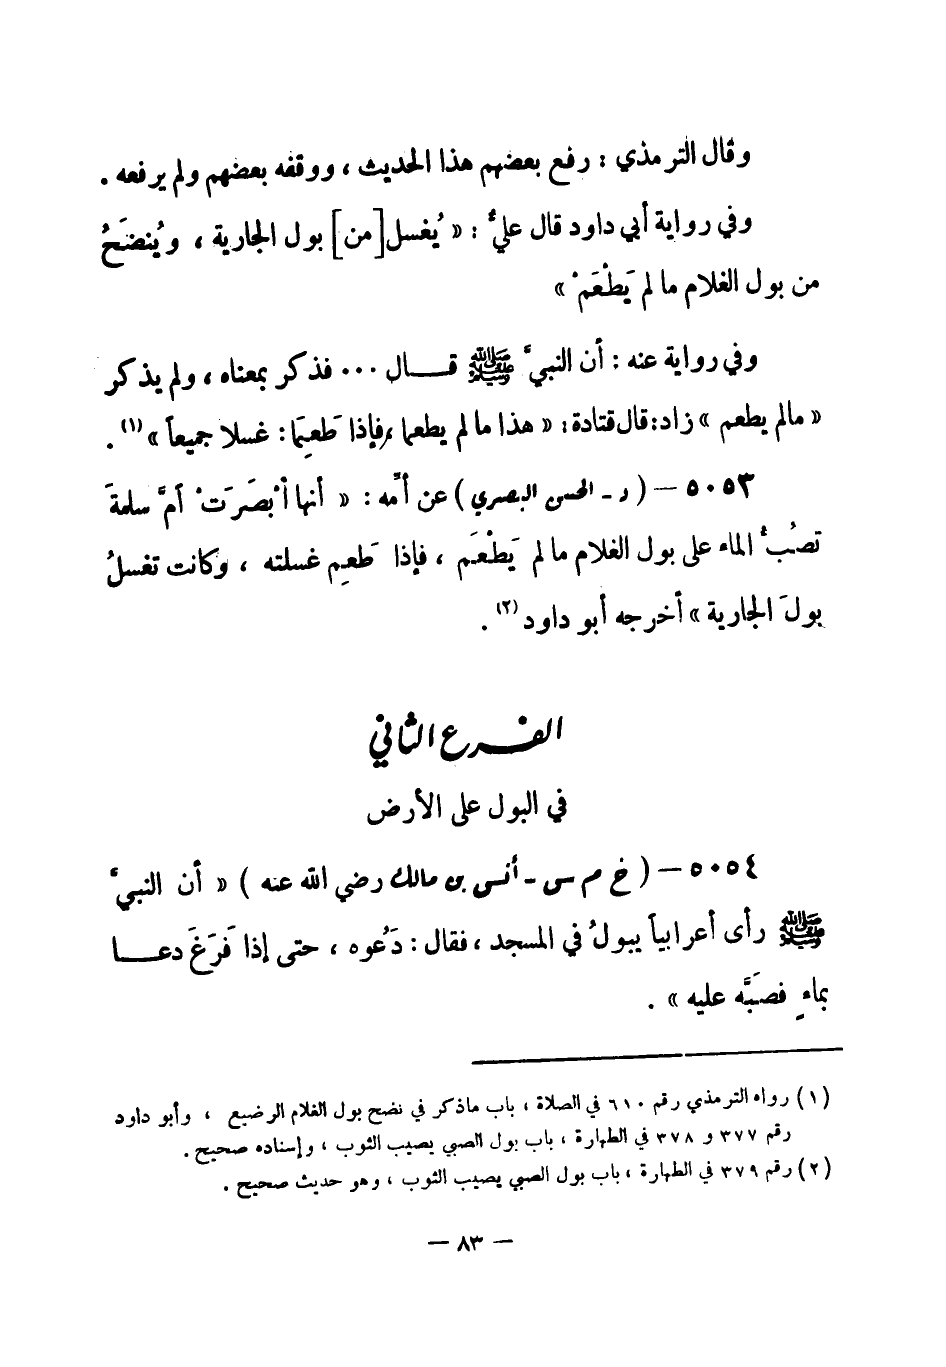 وقال الترمذي : رفع بعضهم هذا الحديث ، ووقفه بعضهم ولم يرفعه .
وفي رواية أبي داود قال عليٌّ : « يُغسل [من] بول الجارية ، ويُنضَحُ
من بول الغلام ما لم يَطْعَمْ »
وفي رواية عنه : أن النبيَّ ﷺ قـال ... فذكر بمعناه ، ولم يذكر
« مالم يطعم » زاد : قال قتادة : « هذا ما لم يطعما ، فإذا طَعِمَا : غسلا جميعاً » (١) .
٥٠٥٣ – ( د - الحسن البصري ) عن أمِّه : « أنها أبْصَرَتْ أمَّ سلمةَ
تصُبُّ الماء على بول الغلام ما لم يَطْعَم ، فإذا طَعِم غسلته ، وكانت تغسلُ
بولَ الجارية » أخرجه أبو داود (٢) .
الفـرع الثاني
في البول على الأرض
٥٠٥٤ – ( خ م س - أنس بن مالك رضي الله عنه ) « أن النبيَّ
ﷺ رأى أعرابياً يبولُ في المسجد ، فقال : دَعُوه ، حتى إذا فَرَغَ دعـا
بماءٍ فصَبَّه عليه » .
(١) رواه الترمذي رقم ٦١٠ في الصلاة ، باب ماذكر في نضح بول الغلام الرضيع ، وأبو داود
رقم ٣٧٧ و ٣٧٨ في الطهارة ، باب بول الصبي يصيب الثوب ، وإسناده صحيح .
(٢) رقم ٣٧٩ في الطهارة ، باب بول الصبي يصيب الثوب ، وهو حديث صحيح .
– ٨٣ –